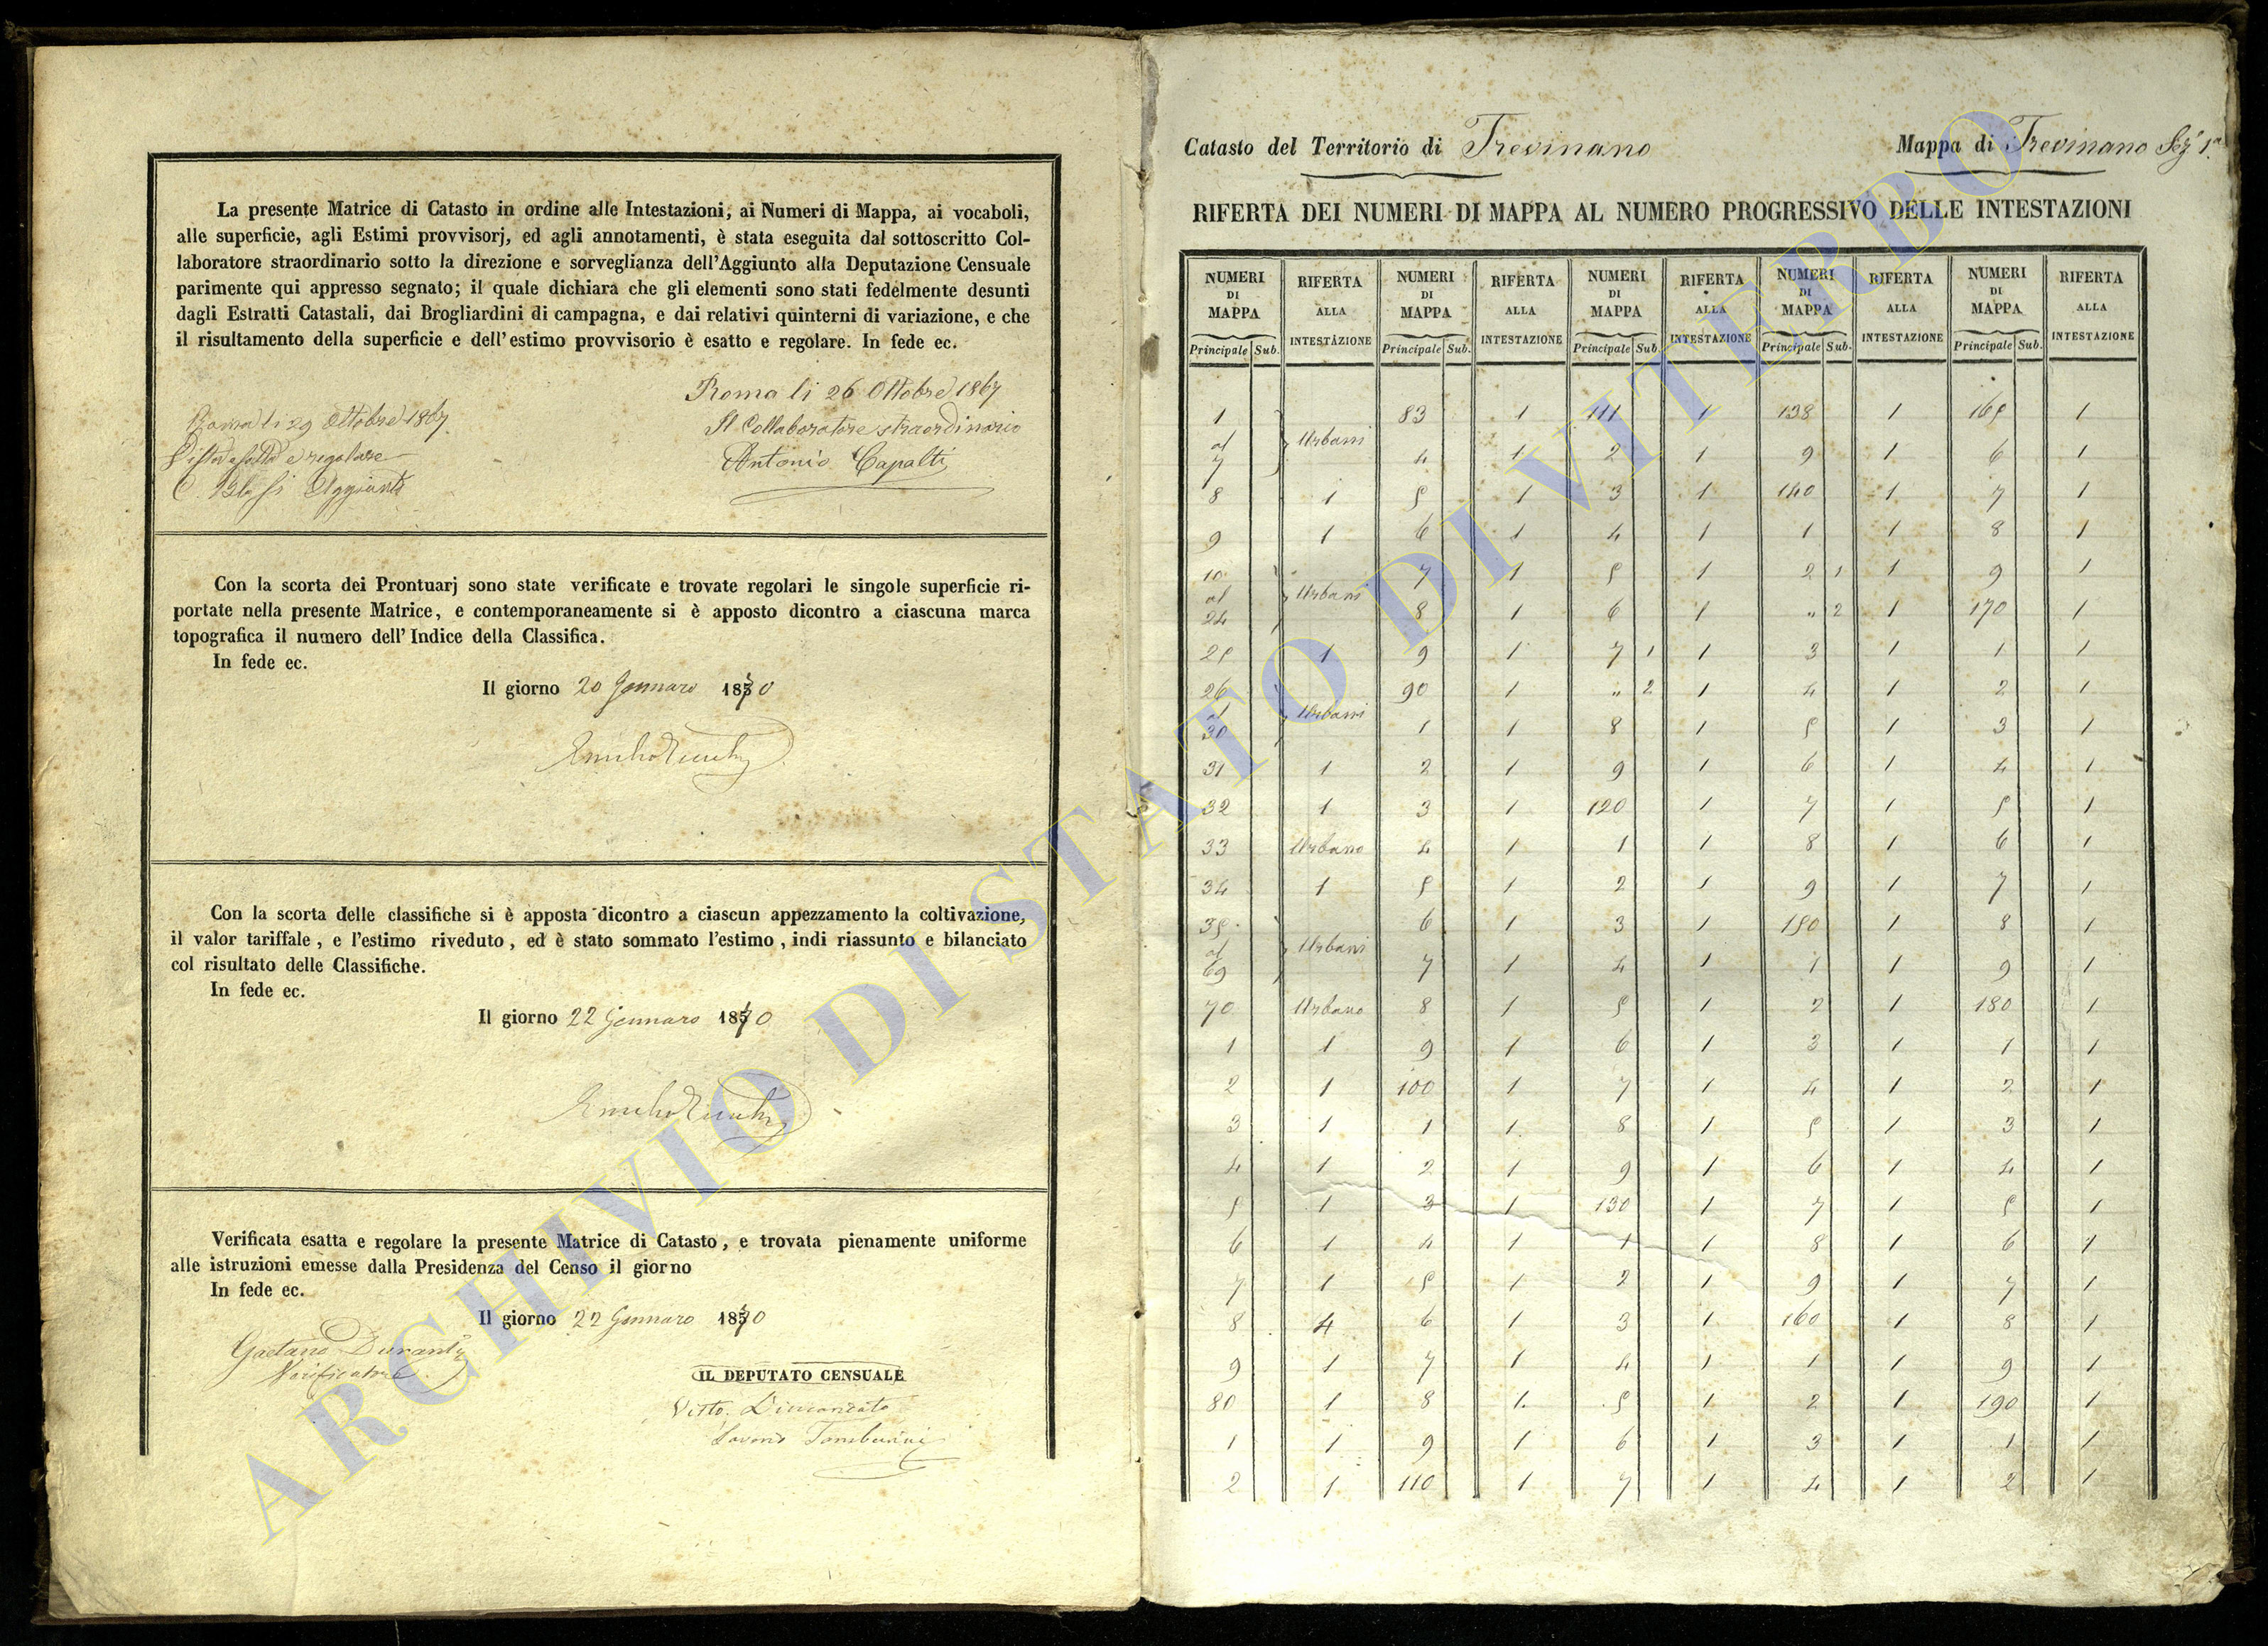 La presente Matrice di Catasto in ordine alle Intestazioni, ai Numeri di Mappa, ai vocaboli,
alle superficie, agli Estimi provvisorj, ed agli annotamenti, è stata eseguita dal sottoscritto Col-
laboratore straordinario sotto la direzione e sorveglianza dell'Aggiunto alla Deputazione Censuale
parimente qui appresso segnato; il quale dichiara che gli elementi sono stati fedelmente desunti
dagli Estratti Catastali, dai Brogliardini di campagna, e dai relativi quinterni di variazione, e che
il risultamento della superficie e dell'estimo provvisorio è esatto e regolare. In fede ec.
Roma li 26 Ottobre 1867
Il Collaboratore straordinario
Antonio Capalti
Roma li 29 Ottobre 1867
e regolare
Aggiunto
Con la scorta dei Prontuarj sono state verificate e trovate regolari le singole superficie ri-
portate nella presente Matrice, e contemporaneamente si è apposto dicontro a ciascuna marca
topografica il numero dell'Indice della Classifica.
In fede ec.
Il giorno 20 Gennaro 1870
Con la scorta delle classifiche si è apposta dicontro a ciascun appezzamento la coltivazione,
il valor tariffale, e l'estimo riveduto, ed è stato sommato l'estimo, indi riassunto e bilanciato
col risultato delle Classifiche.
In fede ec.
Il giorno 22 Gennaro 1870
Verificata esatta e regolare la presente Matrice di Catasto, e trovata pienamente uniforme
alle istruzioni emesse dalla Presidenza del Censo il giorno
In fede ec.
Il giorno 22 Gennaro 1870
Gaetano Duranti
Verificatore
IL DEPUTATO CENSUALE
Visto.
Tamburini
Catasto del Territorio di Trevinano Mappa di Trevinano Sez. 1a
RIFERTA DEI NUMERI DI MAPPA AL NUMERO PROGRESSIVO DELLE INTESTAZIONI
NUMERI RIFERTA NUMERI RIFERTA NUMERI RIFERTA NUMERI RIFERTA NUMERI RIFERTA
DI ALLA DI ALLA DI ALLA DI ALLA DI ALLA
MAPPA INTESTAZIONE MAPPA INTESTAZIONE MAPPA INTESTAZIONE MAPPA INTESTAZIONE MAPPA INTESTAZIONE
Principale Sub. Principale Sub. Principale Sub. Principale Sub. Principale Sub.
1 83 1 111 1 138 1 165 1
al Urbani
7 4 1 2 1 9 1 6 1
8 1 5 1 3 1 140 1 7 1
9 1 6 1 4 1 1 1 8 1
10 7 1 5 1 2 1 1 9 1
al Urbani
24 8 1 6 1 „ 2 1 170 1
25 1 9 1 7 1 1 3 1 1 1
26 90 1 „ 2 1 4 1 2 1
al Urbani
30 1 1 8 1 5 1 3 1
31 1 2 1 9 1 6 1 4 1
32 1 3 1 120 1 7 1 5 1
33 Urbano 4 1 1 1 8 1 6 1
34 1 5 1 2 1 9 1 7 1
35 6 1 3 1 150 1 8 1
al Urbani
69 7 1 4 1 1 1 9 1
70 Urbano 8 1 5 1 2 1 180 1
1 1 9 1 6 1 3 1 1 1
2 1 100 1 7 1 4 1 2 1
3 1 1 1 8 1 5 1 3 1
4 1 2 1 9 1 6 1 4 1
5 1 3 1 130 1 7 1 5 1
6 1 4 1 1 1 8 1 6 1
7 1 5 1 2 1 9 1 7 1
8 4 6 1 3 1 160 1 8 1
9 1 7 1 4 1 1 1 9 1
80 1 8 1 5 1 2 1 190 1
1 1 9 1 6 1 3 1 1 1
2 1 110 1 7 1 4 1 2 1
ARCHIVIO DI STATO DI VITERBO